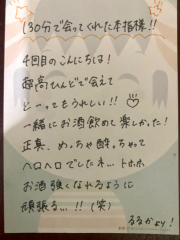 (30分で会ってくれた本指様!!
4回目のこんにちは!
超高ひんどで会えて
とーってもうれしい!!
一緒にお酒飲めて楽しかった!
正真、めっちゃ酔っちゃって
ヘロヘロでしたネ…トホホ
お酒強くなれるように
頑張る…!!(笑)
るるかより!